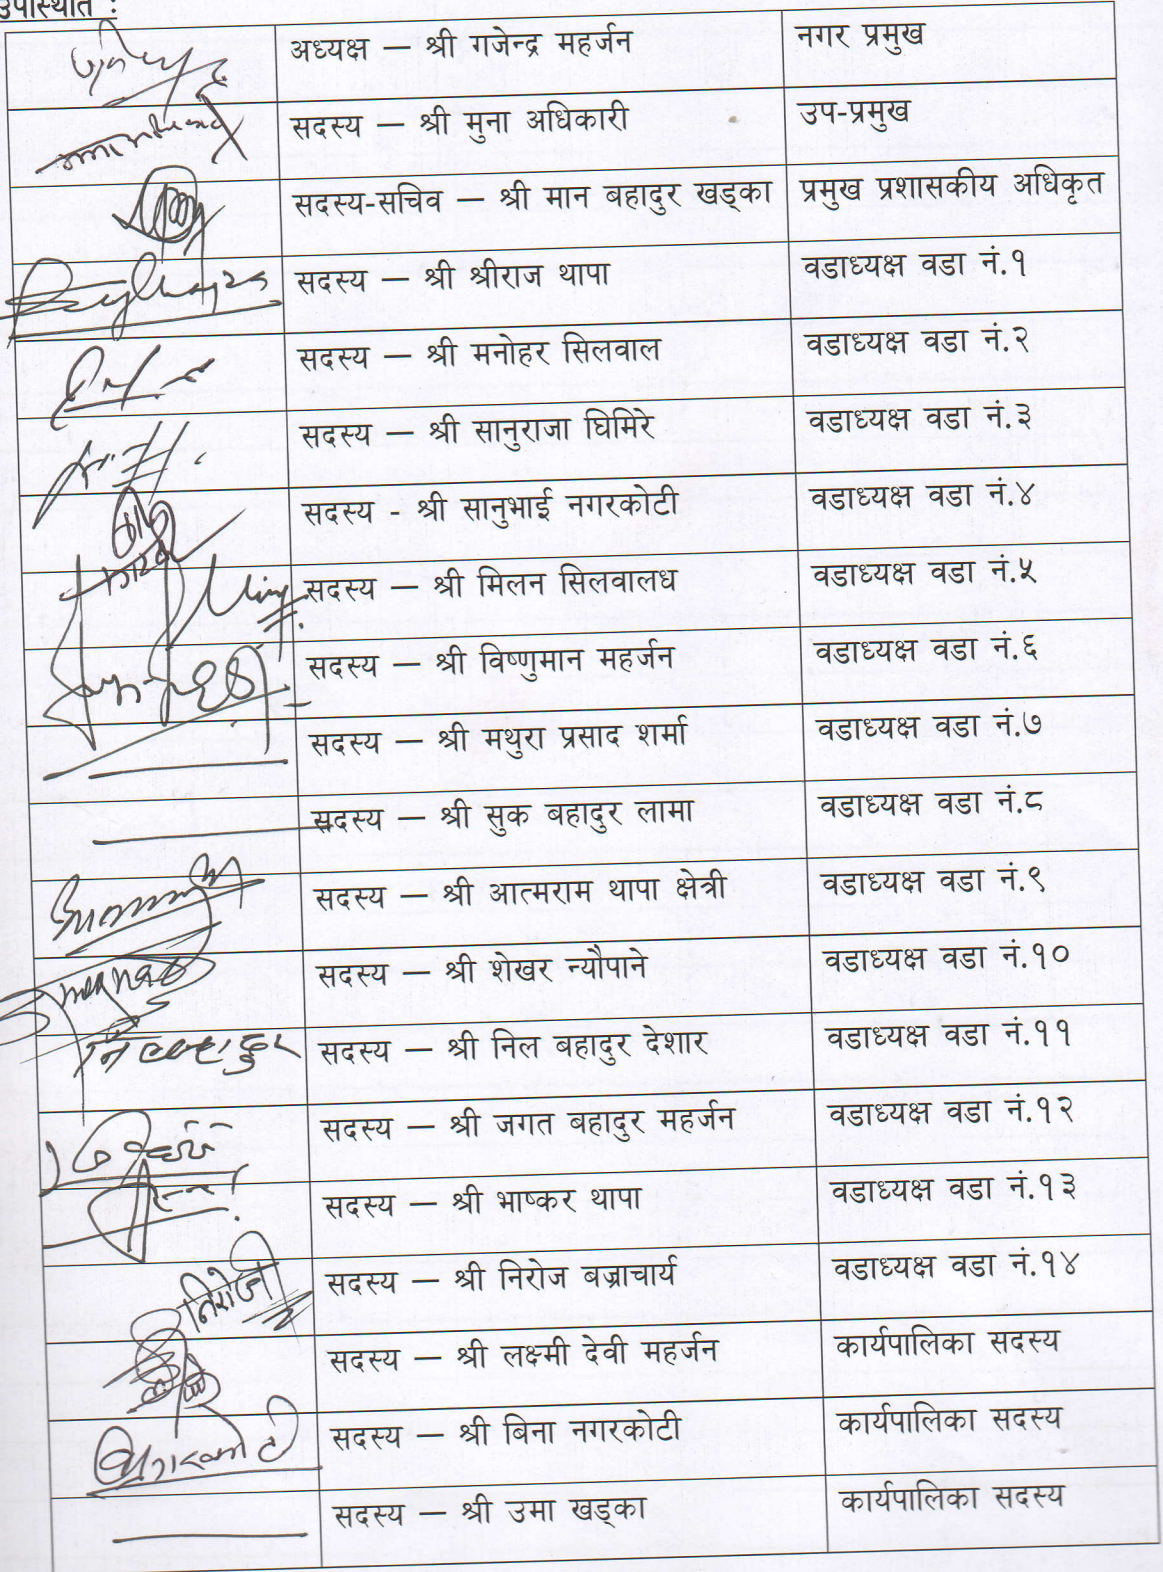 उपस्थिति :
अध्यक्ष — श्री गजेन्द्र महर्जन नगर प्रमुख
सदस्य — श्री मुना अधिकारी उप-प्रमुख
सदस्य-सचिव — श्री मान बहादुर खड्का प्रमुख प्रशासकीय अधिकृत
सदस्य — श्री श्रीराज थापा वडाध्यक्ष वडा नं.१
सदस्य — श्री मनोहर सिलवाल वडाध्यक्ष वडा नं.२
सदस्य — श्री सानुराजा घिमिरे वडाध्यक्ष वडा नं.३
सदस्य - श्री सानुभाई नगरकोटी वडाध्यक्ष वडा नं.४
सदस्य — श्री मिलन सिलवालध वडाध्यक्ष वडा नं.५
सदस्य — श्री विष्णुमान महर्जन वडाध्यक्ष वडा नं.६
सदस्य — श्री मथुरा प्रसाद शर्मा वडाध्यक्ष वडा नं.७
सदस्य — श्री सुक बहादुर लामा वडाध्यक्ष वडा नं.८
सदस्य — श्री आत्मराम थापा क्षेत्री वडाध्यक्ष वडा नं.९
सदस्य — श्री शेखर न्यौपाने वडाध्यक्ष वडा नं.१०
निलबहादुर सदस्य — श्री निल बहादुर देशार वडाध्यक्ष वडा नं.११
सदस्य — श्री जगत बहादुर महर्जन वडाध्यक्ष वडा नं.१२
सदस्य — श्री भाष्कर थापा वडाध्यक्ष वडा नं.१३
निरोज सदस्य — श्री निरोज बज्राचार्य वडाध्यक्ष वडा नं.१४
सदस्य — श्री लक्ष्मी देवी महर्जन कार्यपालिका सदस्य
सदस्य — श्री बिना नगरकोटी कार्यपालिका सदस्य
सदस्य — श्री उमा खड्का कार्यपालिका सदस्य